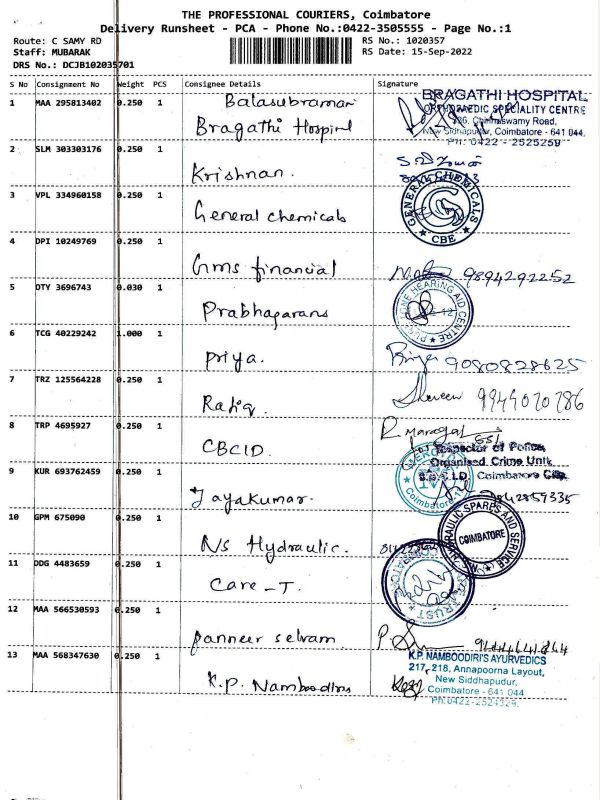 THE PROFESSIONAL COURIERS, Coimbatore
Delivery Runsheet - PCA - Phone No.:0422-3505555 - Page No.:1
Route: C SAMY RD
RS No.: 1020357
Staff: MUBARAK
RS Date: 15-Sep-2022
DRS No.: DCJB102035701
S No Consignment No Weight PCS Consignee Details Signature
1 MAA 295813402 0.250 1 Balasubraman
Bragathi Hospital
BRAGATHI HOSPITAL
ORTHOPAEDIC SPECIALITY CENTRE
Chinnaswamy Road,
New Sidhapudur, Coimbatore - 641 044.
PH: 0422 - 2525259
2 SLM 303303176 0.250 1
Krishnan.
3 VPL 334960158 0.250 1
General chemicals
GENERAL CHEMICALS
CBE
4 DPI 10249769 0.250 1
Gms financial
9894292252
5 DTY 3696743 0.030 1
Prabhagarans
HEARING AID CENTRE
6 TCG 40229242 1.000 1
Priya.
9080828625
7 TRZ 125564228 0.250 1
Rafiq.
9949070786
8 TRP 4695927 0.250 1
CBCID.
Inspector of Police,
Organised Crime Unit,
Coimbatore City.
9 KUR 693762459 0.250 1
Jayakumar.
Coimbatore
9842859335
10 GPM 675090 0.250 1
NS Hydraulic.
HYDRAULIC SPARES AND SERVICE
COIMBATORE
11 DDG 4483659 0.250 1
Care - T.
TRUST
12 MAA 566530593 0.250 1
panneer selvam
13 MAA 568347630 0.250 1
K.P. Namboodiris
K.P. NAMBOODIRI'S AYURVEDICS
217, 218, Annapoorna Layout,
New Siddhapudur,
Coimbatore - 641 044
PH:0422-2524329.